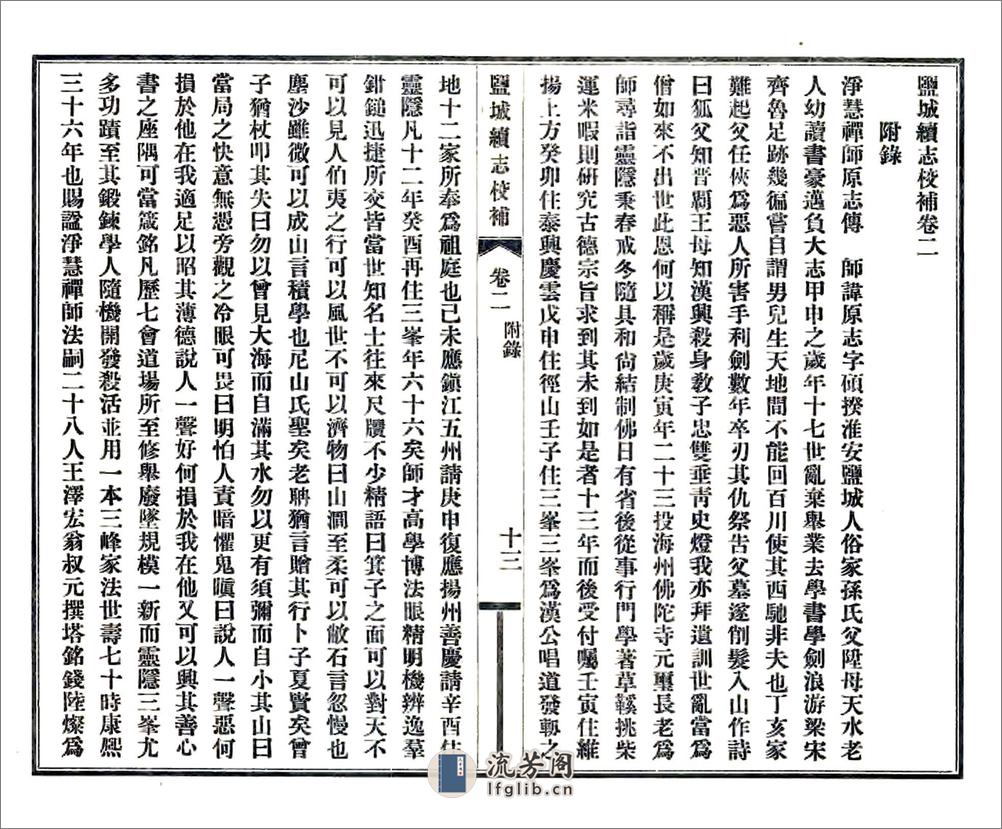 鹽城續志校補卷二
附錄
淨慧禪師原志傳　師諱原志字碩揆淮安鹽城人俗家孫氏父陞母天水老
人幼讀書豪邁負大志甲申之歲年十七世亂棄舉業去學書學劍浪游梁宋
齊魯足跡幾徧嘗自謂男兒生天地間不能回百川使其西馳非夫也丁亥家
難起父任俠爲惡人所害手利劍數年卒刃其仇祭告父墓遂削髮入山作詩
曰狐父知晋覇王母知漢興殺身敎子忠雙垂靑史燈我亦拜遺訓世亂當爲
僧如來不出世此恩何以稱是歲庚寅年二十三投海州佛陀寺元璽長老爲
師尋詣靈隱秉春戒冬隨具和尙結制佛日有省後從事行門學著草鞵挑柴
運米暇則研究古德宗旨求到其未到如是者十三年而後受付囑壬寅住維
揚上方癸卯住泰興慶雲戊申住徑山壬子住三峯三峯爲漢公唱道發軔之
鹽城續志校補
卷二
附錄
十三
地十二家所奉爲祖庭也己未應鎭江五州請庚申復應揚州善慶請辛酉住
靈隱凡十二年癸酉再住三峯年六十六矣師才高學博法眼精明機辨逸羣
鉗鎚迅捷所交皆當世知名士往來尺牘不少精語曰箕子之面可以對天不
可以見人伯夷之行可以風世不可以濟物曰山澗至柔可以敝石言忽慢也
塵沙雖微可以成山言積學也尼山氏聖矣老聃猶言贈其行卜子夏賢矣曾
子猶杖叩其失曰勿以曾見大海而自滿其水勿以更有須彌而自小其山曰
當局之快意無憑旁觀之冷眼可畏曰明怕人責暗懼鬼瞋曰說人一聲惡何
損於他在我適足以昭其薄德說人一聲好何損於我在他又可以興其善心
書之座隅可當箴銘凡歷七會道場所至修舉廢墜規模一新而靈隱三峯尤
多功蹟至其鍛鍊學人隨機開發殺活並用一本三峰家法世壽七十時康熙
三十六年也賜諡淨慧禪師法嗣二十八人王澤宏翁叔元撰塔銘錢陸燦爲
流芳阁
lfglib.cn